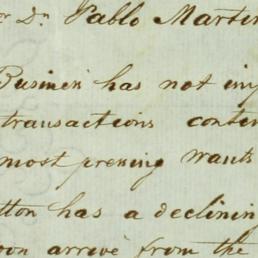 Dn. Pablo Martin
Business has not im
transactions conten
most pressing wants
tton has a declining
oon arrive from the